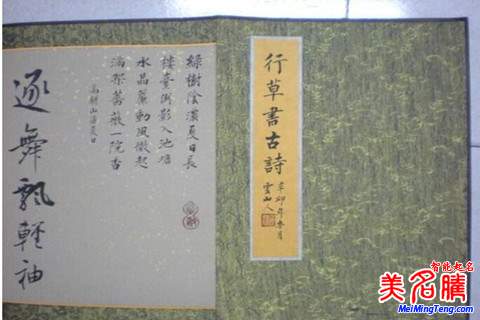 行草書古詩
辛卯年
雲山人
緑樹陰濃夏日長
樓臺倒影入池塘
水晶簾動風微起
滿架薔薇一院香
高駢山亭夏日
逐舞飄輕袖
智能起名
美名騰
MeiMingTeng.com